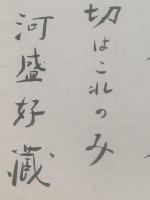 切はこれのみ
河盛好蔵